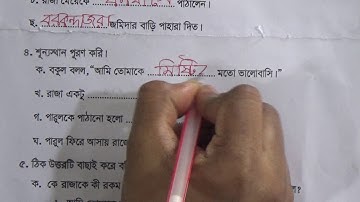 ৮. রাজা মেয়েকে ............ পাঠালেন।
ছ. বরকন্দাজরা জমিদার বাড়ি পাহারা দিত।
৪. শূন্যস্থান পূরণ করি।
ক. বকুল বলল, “আমি তোমাকে ...মিষ্টি... মতো ভালোবাসি।”
খ. রাজা একটু
গ. পারুলকে পাঠানো হলো
ঘ. পারুল ফিরে আসায় রাজে
৫. ঠিক উত্তরটি বাছাই করে
ক. কে রাজাকে কী রকম